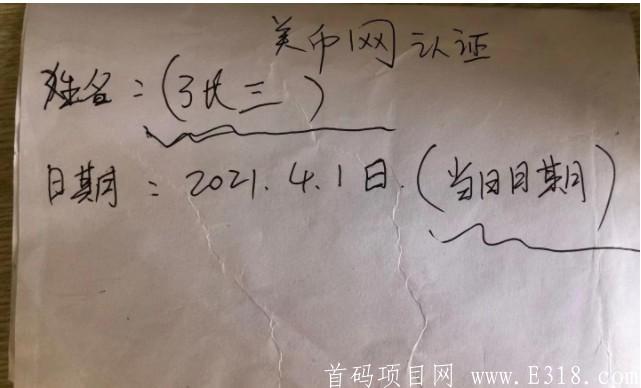 美币网认证
姓名：(张三)
日期：2021.4.1日.(当日日期)
首码项目网 www.E318.com